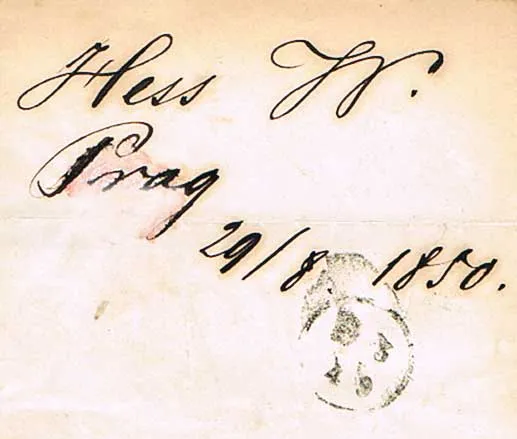 Hess W.
Prag
29/8. 1850.